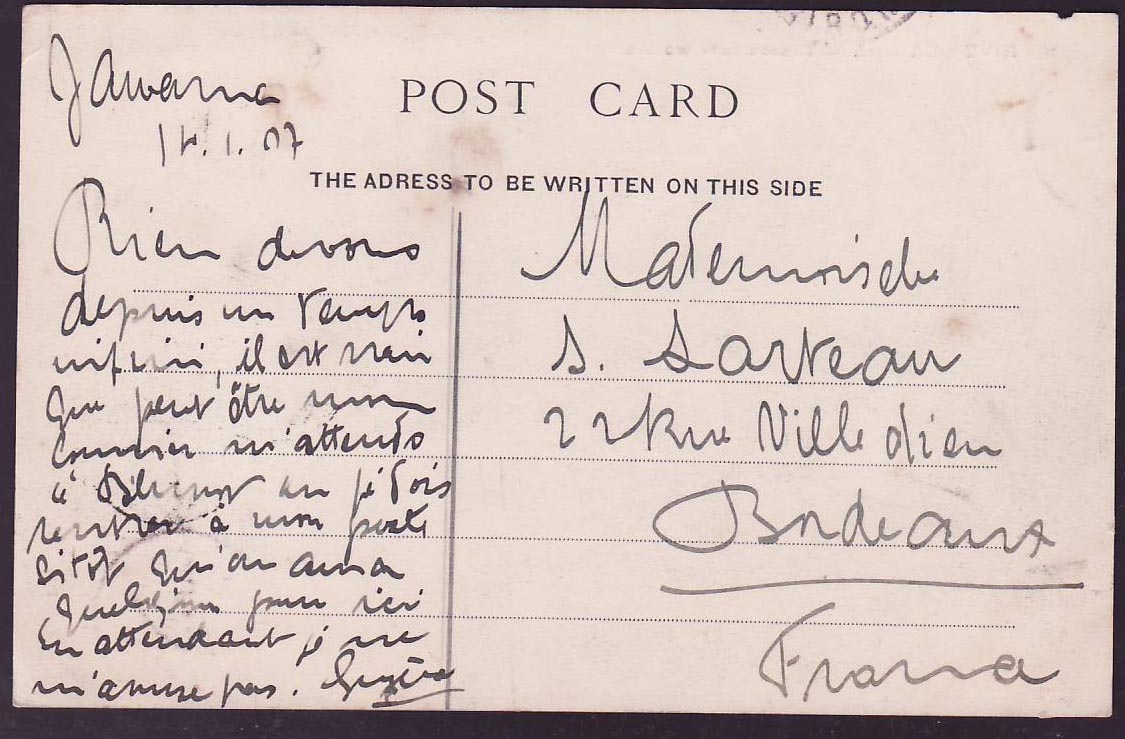 POST CARD
THE ADRESS TO BE WRITTEN ON THIS SIDE
1.07
Rien de vous
depuis un temps
infini, il est vrai
que peut être mon
courrier m'attends
à où je dois
rentrer à mon poste
sitôt qu'on aura
quelqu'un pour ici
En attendant je ne
m'amuse pas.
Mademoiselle
S.
22 Rue Ville dieu
Bordeaux
France